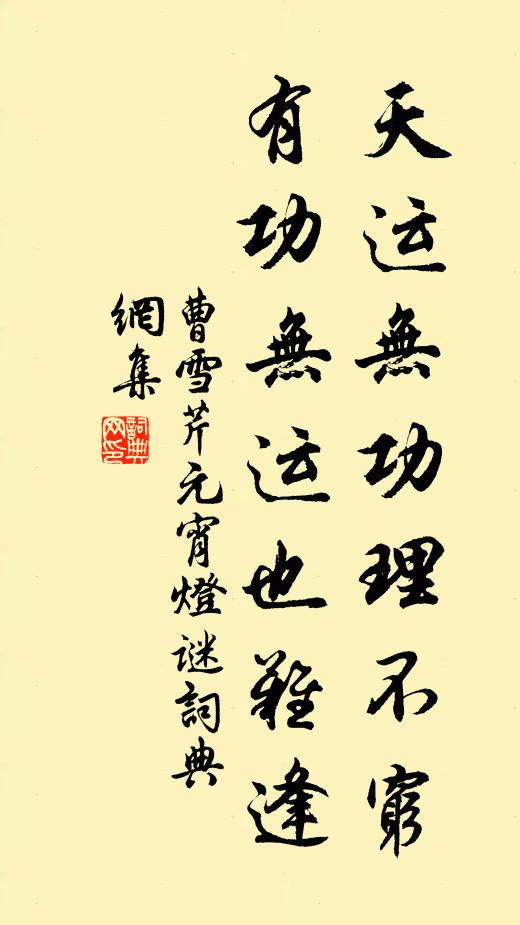 天运無功理不窮
有功無运也難逢
曹雪芹元宵燈谜詞典
網集
詞典
网印